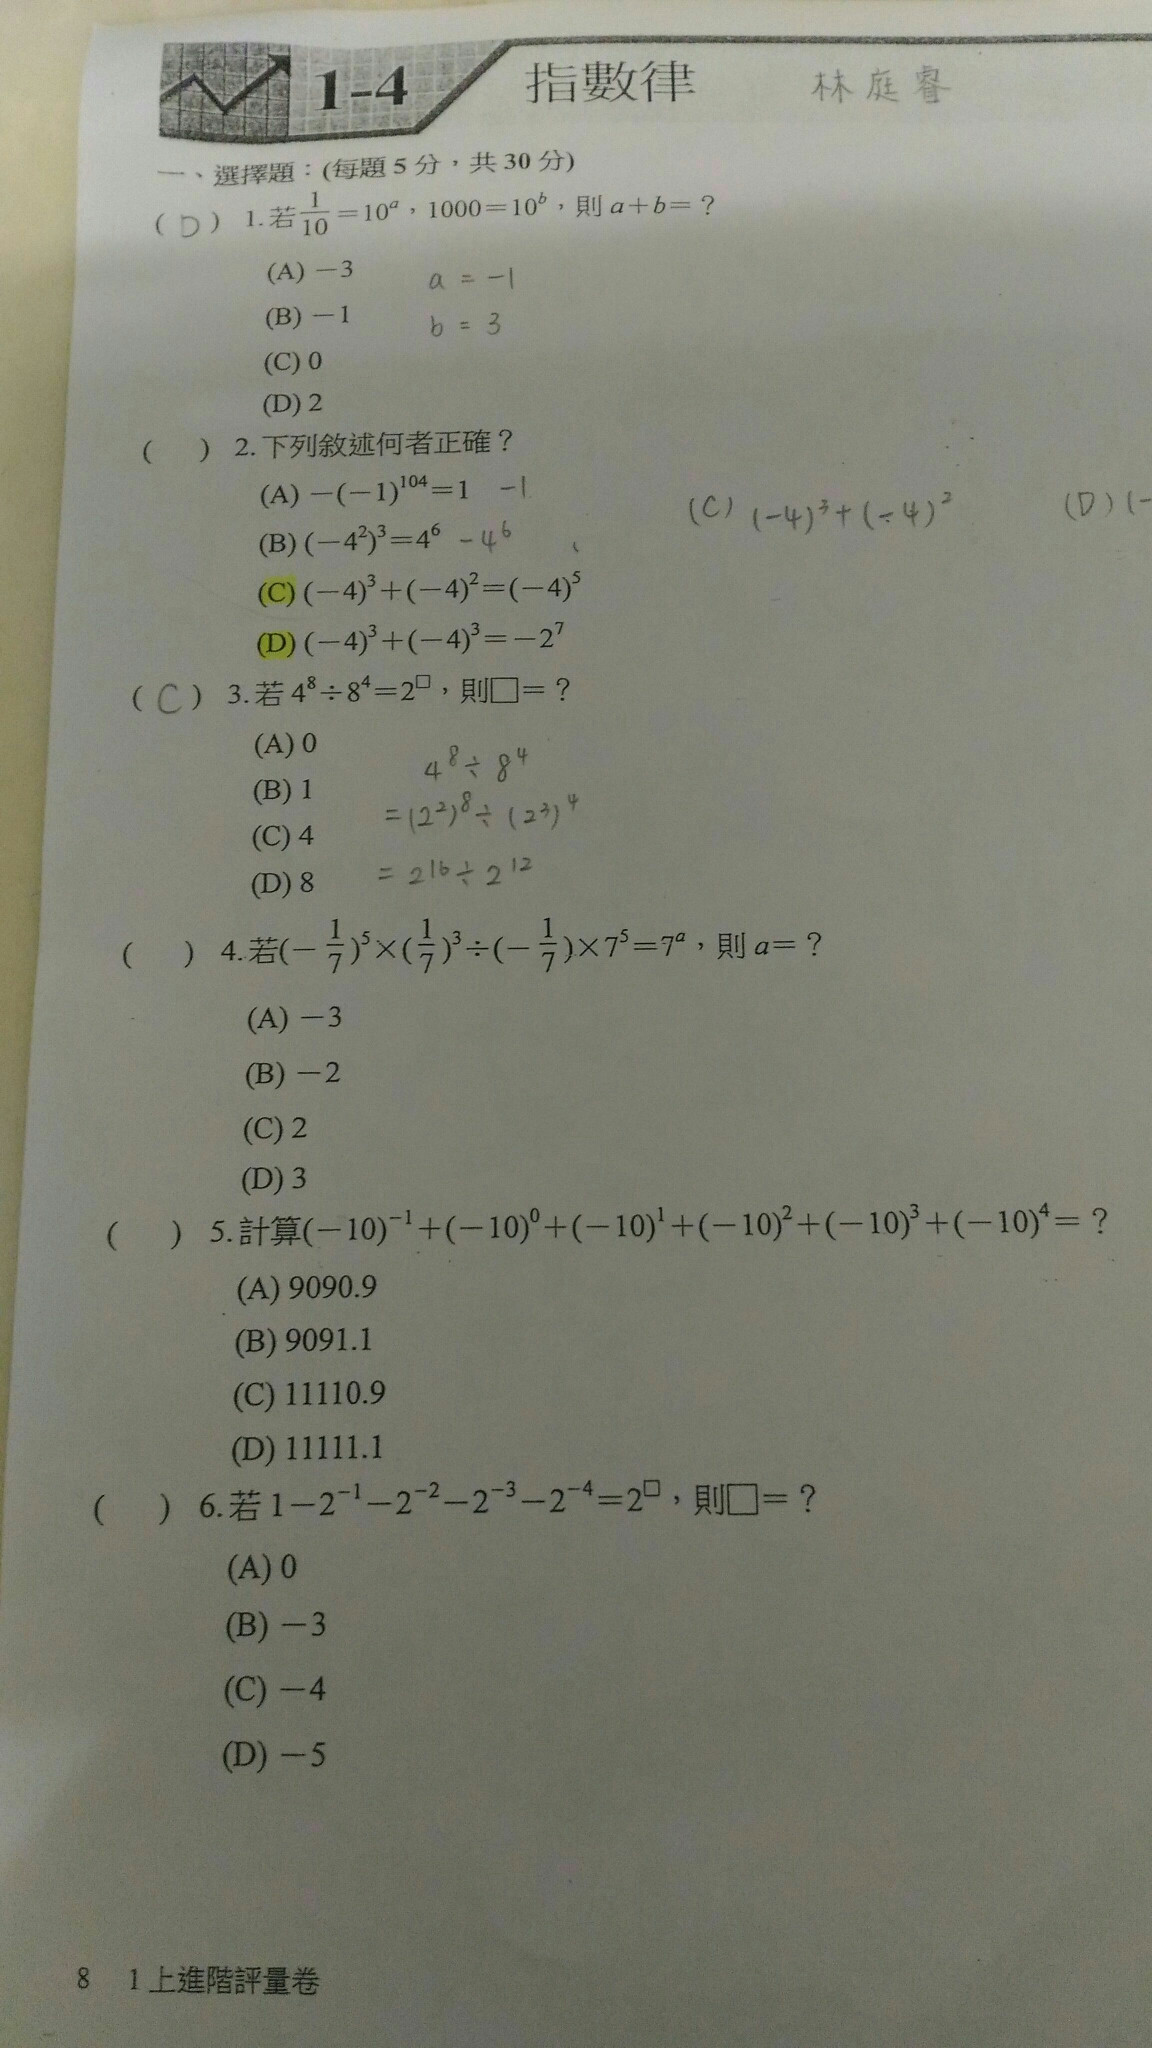 1-4 指數律 林庭睿
一、選擇題：(每題 5 分，共 30 分)
( D ) 1. 若 1/10 ＝10ᵃ，1000＝10ᵇ，則 a＋b＝？
(A) －3 a = -1
(B) －1 b = 3
(C) 0
(D) 2
( ) 2. 下列敘述何者正確？
(A) －(－1)¹⁰⁴＝1 -1
(B) (－4²)³＝4⁶ -4⁶
(C) (－4)³＋(－4)²＝(－4)⁵ (C) (-4)³+(-4)² (D) (-
(D) (－4)³＋(－4)³＝－2⁷
( C ) 3. 若 4⁸÷8⁴＝2^□，則□＝？
(A) 0 4⁸÷8⁴
(B) 1 =(2²)⁸÷(2³)⁴
(C) 4
(D) 8 = 2¹⁶÷2¹²
( ) 4. 若(－1/7)⁵×(1/7)³÷(－1/7)×7⁵＝7ᵃ，則 a＝？
(A) －3
(B) －2
(C) 2
(D) 3
( ) 5. 計算(－10)⁻¹＋(－10)⁰＋(－10)¹＋(－10)²＋(－10)³＋(－10)⁴＝？
(A) 9090.9
(B) 9091.1
(C) 11110.9
(D) 11111.1
( ) 6. 若 1－2⁻¹－2⁻²－2⁻³－2⁻⁴＝2^□，則□＝？
(A) 0
(B) －3
(C) －4
(D) －5
8 1 上進階評量卷